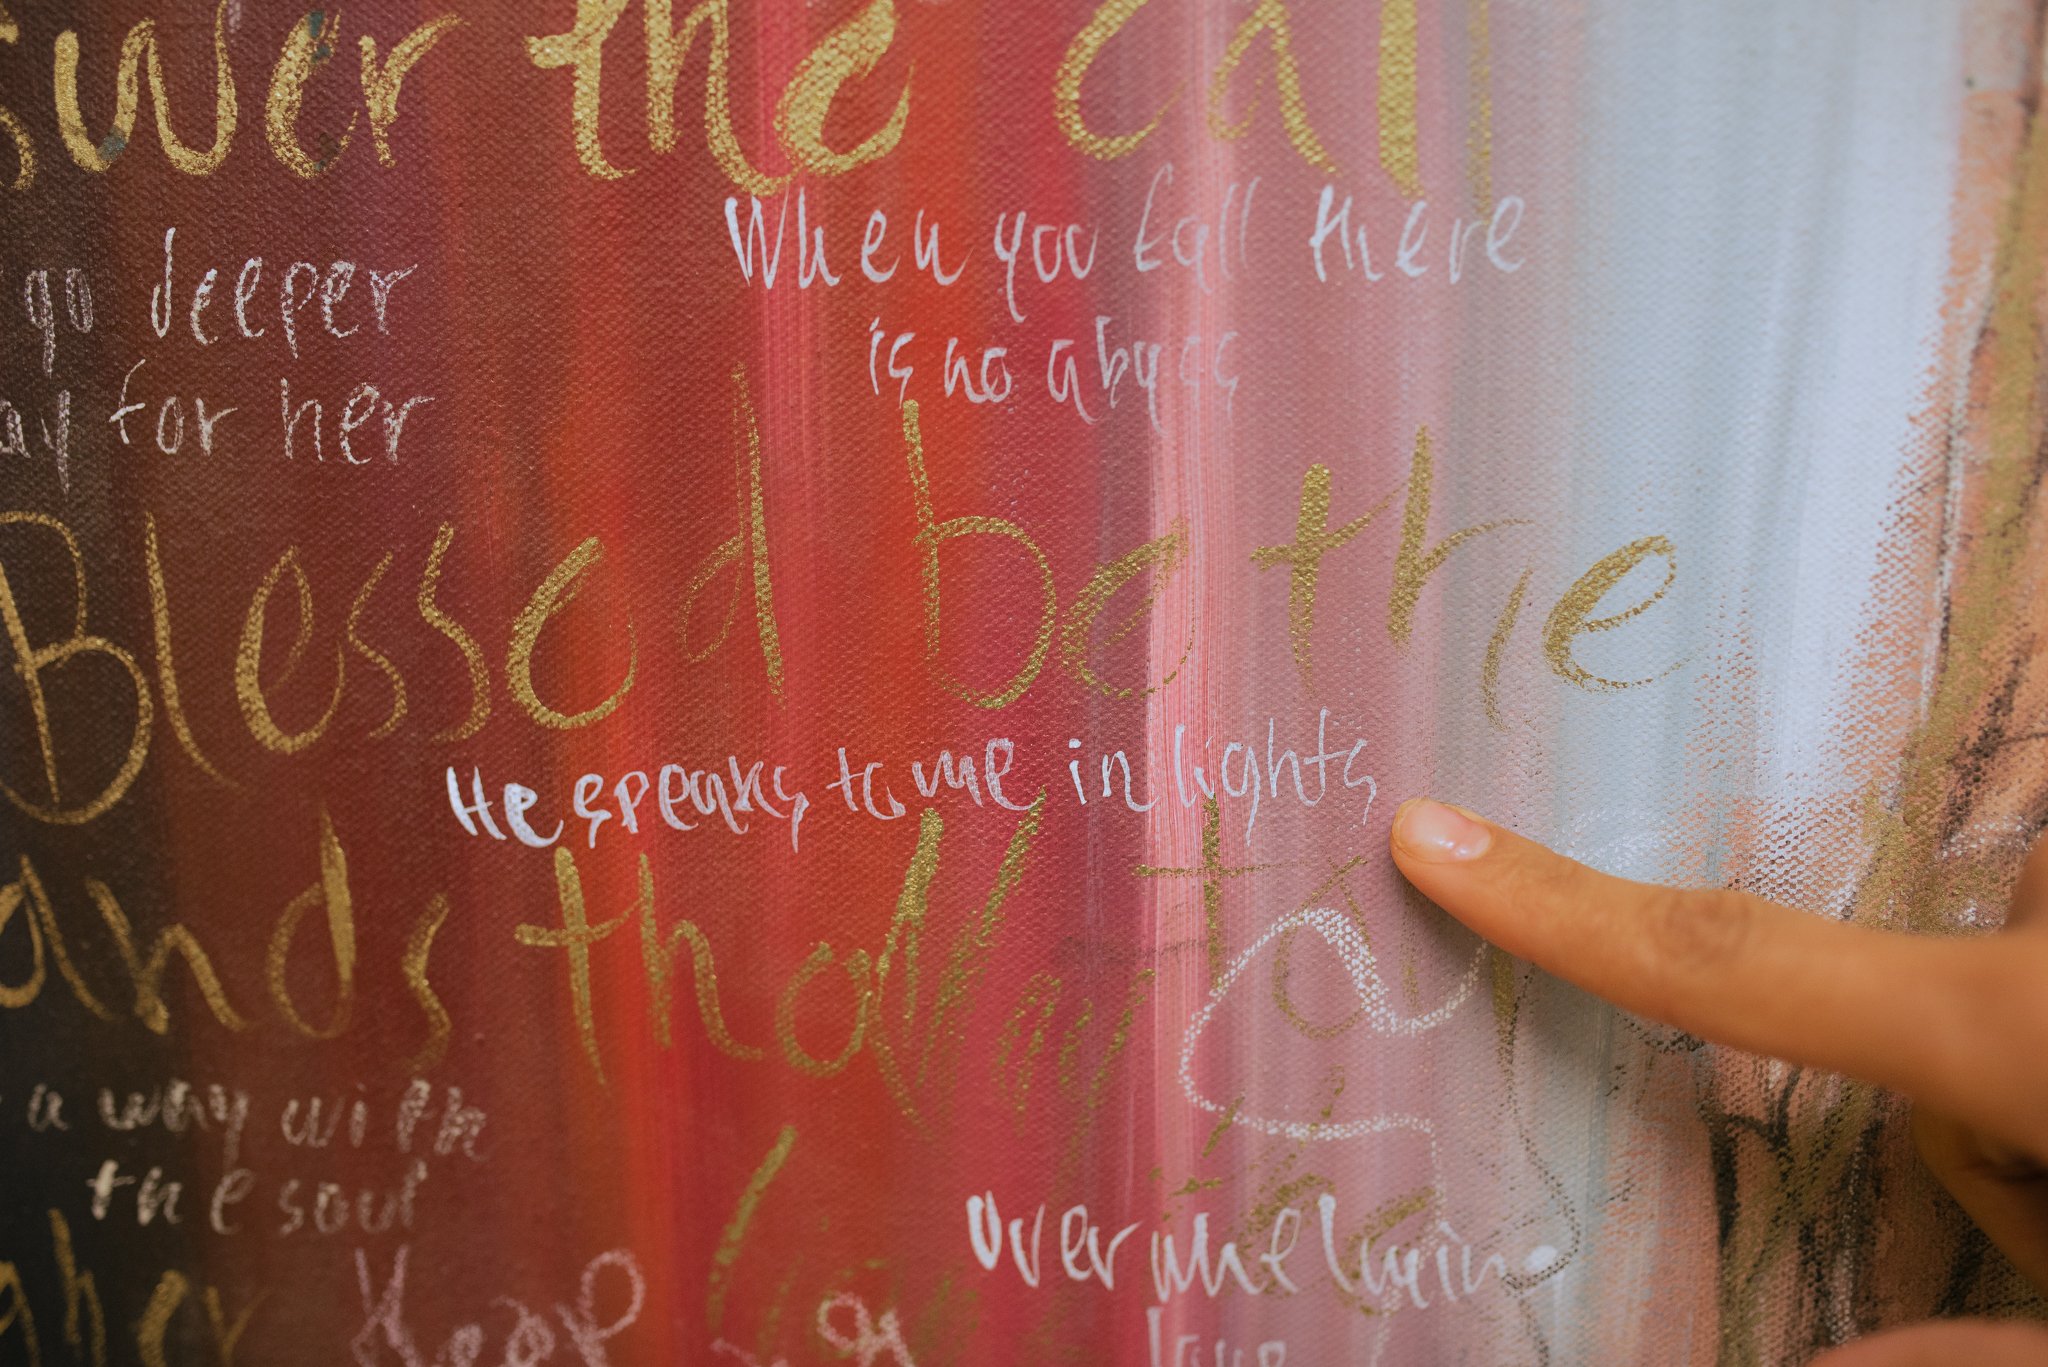 swer the call
When you fall there
go deeper
is no abyss
ay for her
Blessed be the
He speaks to me in lights
ands that
a way with
the soul
Overwhelming
gher Keep
love